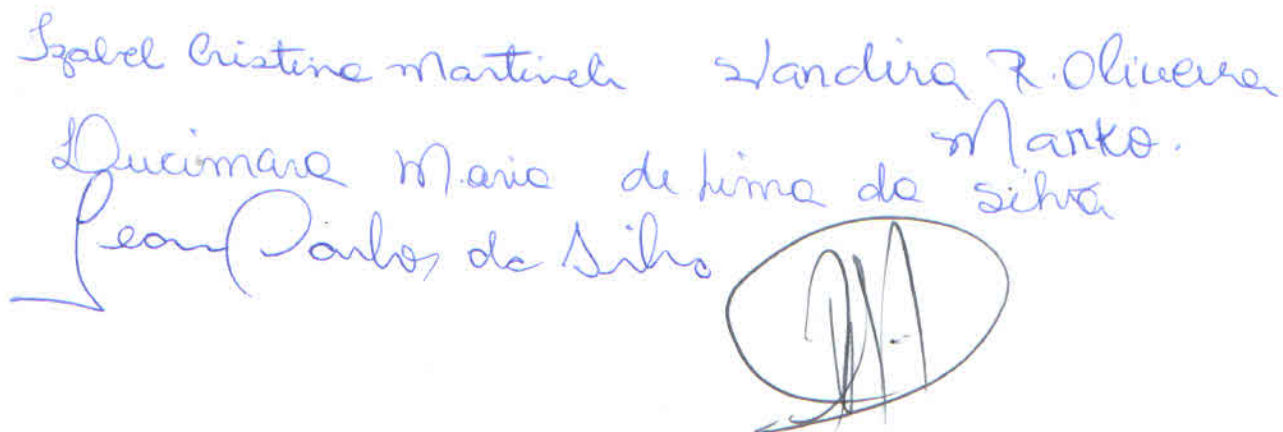 Izabel Cristina Martineli Jandira R. Oliveira
Marko.
Lucimara Maria de Lima da Silva
Jean Carlos da Silva